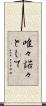 唯々諾々
として